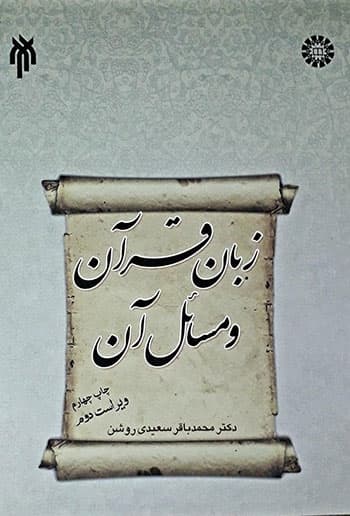 زبان قرآن
و مسائل آن
چاپ چهارم
ویراست دوم
دکتر محمدباقر سعیدی روشن